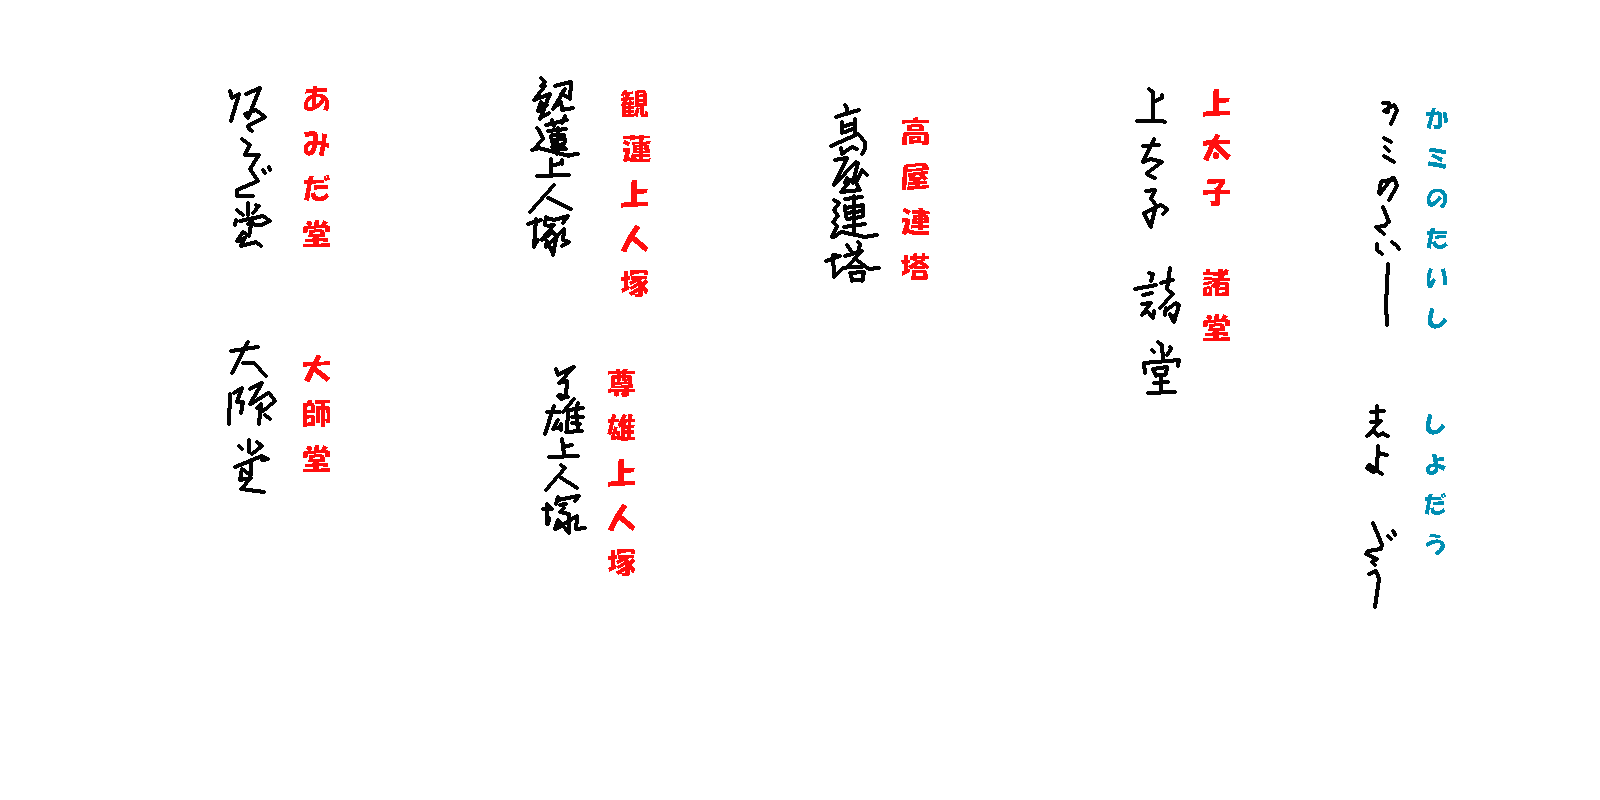 かミのたいし しよだう
かミのたいし しよだう
上太子 諸堂
上太子 諸堂
高屋連塔
高屋連塔
観蓮上人塚
観蓮上人塚
尊雄上人塚
尊雄上人塚
あみだ堂
あみだ堂
大師堂
大師堂